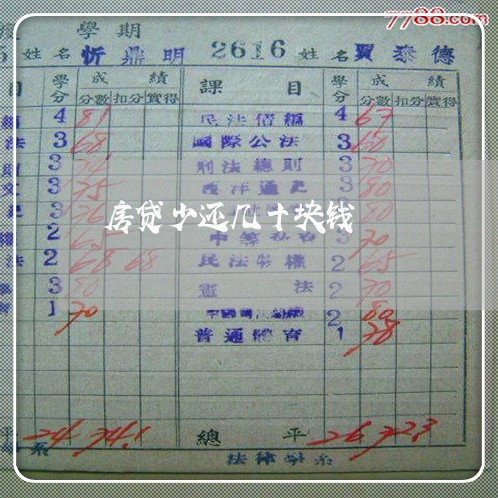 7788.com
學期
姓名 忻鼎明 2616 姓名 賈泰德
目 學分 成績 課目 學分 成績
分數 扣分 實得 分數 扣分 實得
4 81 民法債編 4 67
法 3 68 國際公法 3 60
3 刑法總則 3 70
3 75 西洋通史 3 80
3 76 80
房贷少还几十块钱
2 65 3 70
法 2 68 68 民法物權 2 65
3 80 憲法 2 70
1 70 2 80
普通體育 1 78
24 74.1 總平 26 72.3
法律學系